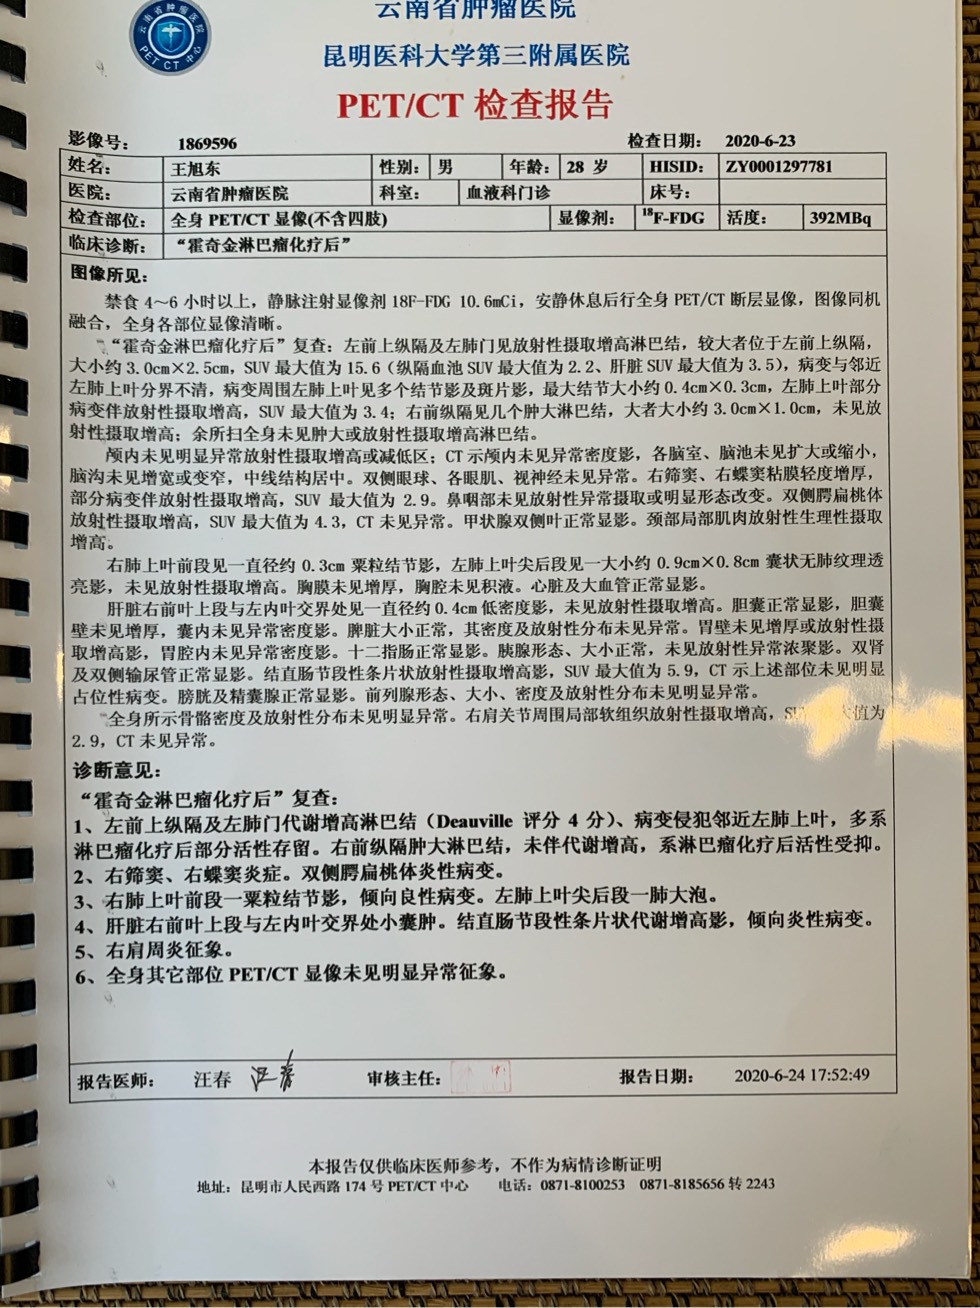 云南省肿瘤医院
PET CT 中心
云南省肿瘤医院
昆明医科大学第三附属医院
PET/CT 检查报告
影像号： 1869596 检查日期： 2020-6-23
姓名： 王旭东 性别： 男 年龄： 28 岁 HISID： ZY0001297781
医院： 云南省肿瘤医院 科室： 血液科门诊 床号：
检查部位： 全身 PET/CT 显像(不含四肢) 显像剂： 18F-FDG 活度： 392MBq
临床诊断： “霍奇金淋巴瘤化疗后”
图像所见：
禁食 4～6 小时以上，静脉注射显像剂 18F-FDG 10.6mCi，安静休息后行全身 PET/CT 断层显像，图像同机
融合，全身各部位显像清晰。
“霍奇金淋巴瘤化疗后”复查：左前上纵隔及左肺门见放射性摄取增高淋巴结，较大者位于左前上纵隔，
大小约 3.0cm×2.5cm，SUV 最大值为 15.6（纵隔血池 SUV 最大值为 2.2、肝脏 SUV 最大值为 3.5），病变与邻近
左肺上叶分界不清，病变周围左肺上叶见多个结节影及斑片影，最大结节大小约 0.4cm×0.3cm，左肺上叶部分
病变伴放射性摄取增高，SUV 最大值为 3.4；右前纵隔见几个肿大淋巴结，大者大小约 3.0cm×1.0cm，未见放
射性摄取增高；余所扫全身未见肿大或放射性摄取增高淋巴结。
颅内未见明显异常放射性摄取增高或减低区；CT 示颅内未见异常密度影，各脑室、脑池未见扩大或缩小，
脑沟未见增宽或变窄，中线结构居中。双侧眼球、各眼肌、视神经未见异常。右筛窦、右蝶窦粘膜轻度增厚，
部分病变伴放射性摄取增高，SUV 最大值为 2.9。鼻咽部未见放射性异常摄取或明显形态改变。双侧腭扁桃体
放射性摄取增高，SUV 最大值为 4.3，CT 未见异常。甲状腺双侧叶正常显影。颈部局部肌肉放射性生理性摄取
增高。
右肺上叶前段见一直径约 0.3cm 粟粒结节影，左肺上叶尖后段见一大小约 0.9cm×0.8cm 囊状无肺纹理透
亮影，未见放射性摄取增高。胸膜未见增厚，胸腔未见积液。心脏及大血管正常显影。
肝脏右前叶上段与左内叶交界处见一直径约 0.4cm 低密度影，未见放射性摄取增高。胆囊正常显影，胆囊
壁未见增厚，囊内未见异常密度影。脾脏大小正常，其密度及放射性分布未见异常。胃壁未见增厚或放射性摄
取增高影，胃腔内未见异常密度影。十二指肠正常显影。胰腺形态、大小正常，未见放射性异常浓聚影。双肾
及双侧输尿管正常显影。结直肠节段性条片状放射性摄取增高影，SUV 最大值为 5.9，CT 示上述部位未见明显
占位性病变。膀胱及精囊腺正常显影。前列腺形态、大小、密度及放射性分布未见明显异常。
全身所示骨骼密度及放射性分布未见明显异常。右肩关节周围局部软组织放射性摄取增高，大值为
2.9，CT 未见异常。
诊断意见：
“霍奇金淋巴瘤化疗后”复查：
1、左前上纵隔及左肺门代谢增高淋巴结（Deauville 评分 4 分）、病变侵犯邻近左肺上叶，多系
淋巴瘤化疗后部分活性存留。右前纵隔肿大淋巴结，未伴代谢增高，系淋巴瘤化疗后活性受抑。
2、右筛窦、右蝶窦炎症。双侧腭扁桃体炎性病变。
3、右肺上叶前段一粟粒结节影，倾向良性病变。左肺上叶尖后段一肺大泡。
4、肝脏右前叶上段与左内叶交界处小囊肿。结直肠节段性条片状代谢增高影，倾向炎性病变。
5、右肩周炎征象。
6、全身其它部位 PET/CT 显像未见明显异常征象。
报告医师： 汪春 汪春 审核主任： 报告日期： 2020-6-24 17:52:49
本报告仅供临床医师参考，不作为病情诊断证明
地址：昆明市人民西路 174 号 PET/CT 中心 电话：0871-8100253 0871-8185656 转 2243